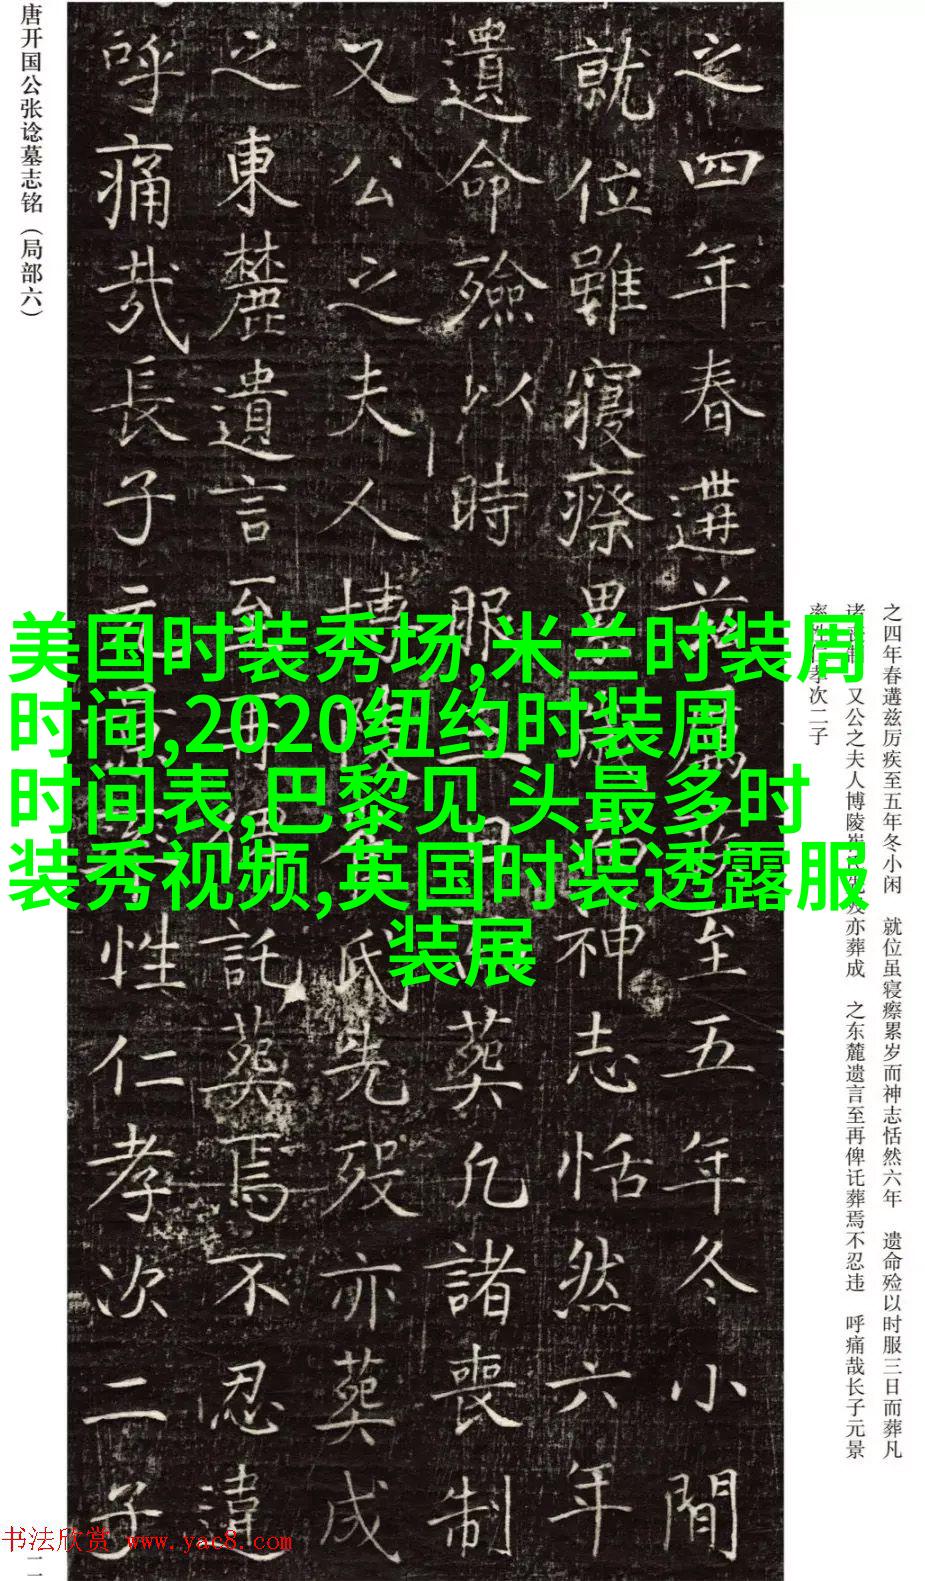 唐开国公张谂墓志铭（局部六）
之四年春遘兹厲至五年冬小閒
就位雖寢瘵累神志恬然六年
遺命殮以時服三日而葬凡諸喪制
又公之夫人博陵氏先歿亦葬成
之東麓遺言至再俾託葬焉不忍違
呼痛哉長子元景性仁孝次二子
之四年春遘兹厉疾至五年冬小闲 就位虽寝瘵累岁而神志恬然六年 遗命殓以时服三日而葬凡
诸丧制 又公之夫人博陵崔氏先殁亦葬成 之东麓遗言至再俾讬葬焉不忍违 呼痛哉长子元景
率性仁孝次二子
美国时装秀场,米兰时装周
时间,2020纽约时装周
时间表,巴黎见 头最多时
装秀视频,英国时装透露服
装展
书法欣赏 www.yac8.com